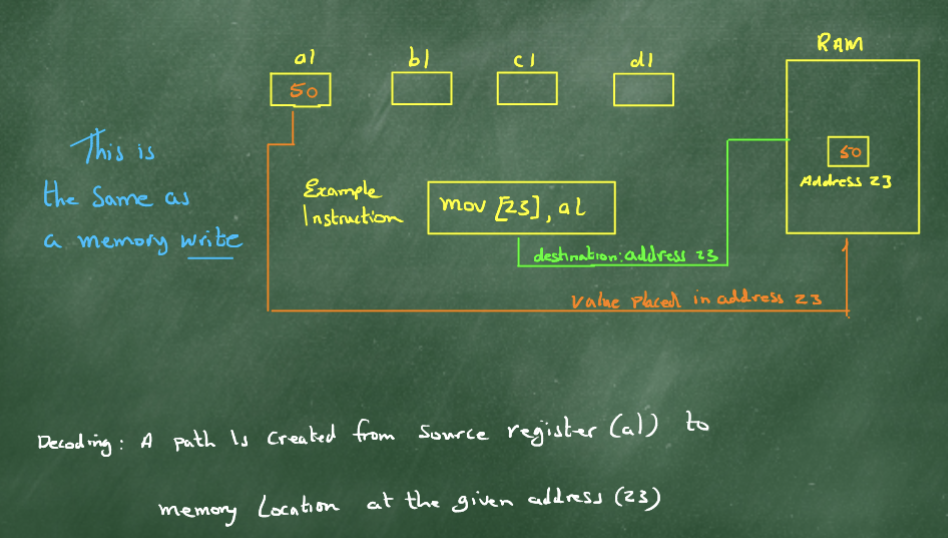 al
bl
cl
dl
RAM
50
50
Address 23
This is
the same as
a memory write
Example
Instruction
mov [23], al
destination: address 23
value placed in address 23
Decoding: A path is created from source register (al) to
memory location at the given address (23)